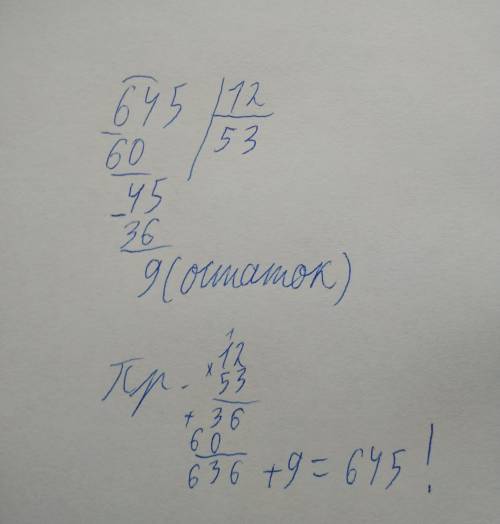 645 | 12
- 60 | 53
- 45
36
9 (остаток)
1
Пр. - × 12
53
+ 36
60
636 + 9 = 645!